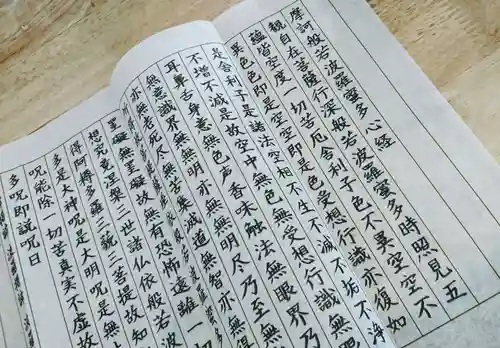 摩訶般若波羅蜜多心經
觀自在菩薩行深般若波羅蜜多時照見五
蘊皆空度一切苦厄舍利子色不異空空不
異色色即是空空即是色受想行識亦復如
是舍利子是諸法空相不生不滅不垢不淨
不增不減是故空中無色無受想行識無眼
耳鼻舌身意無色声香味触法無眼界乃
無意識界無無明亦無無明尽乃至
亦無老死尽無苦集滅道無智亦
罣礙無罣礙故無有恐怖遠離一
想究竟涅槃三世諸仏依般若波
得阿耨多羅三藐三菩提故知
多是大神呪是大明呪是無
呪能除一切苦真実不虚故
多呪即説呪曰